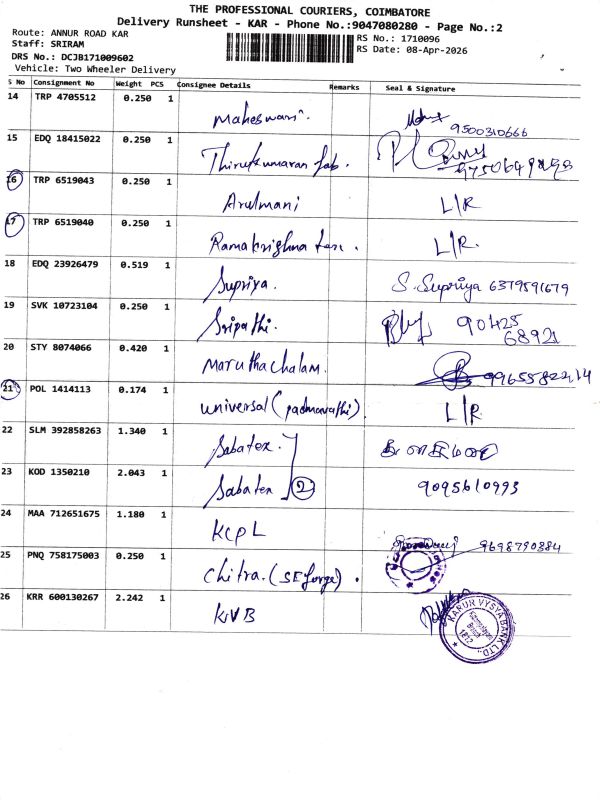 THE PROFESSIONAL COURIERS, COIMBATORE
Delivery Runsheet - KAR - Phone No.:9047080280 - Page No.:2
Route: ANNUR ROAD KAR
Staff: SRIRAM
DRS No.: DCJB171009602
Vehicle: Two Wheeler Delivery
RS No.: 1710096
RS Date: 08-Apr-2026
S No Consignment No Weight PCS Consignee Details Remarks Seal & Signature
14 TRP 4705512 0.250 1 Maheswari. 9500310666
15 EDQ 18415022 0.250 1 Thirukumaran fab.
16 TRP 6519043 0.250 1 Arulmani L/R
17 TRP 6519040 0.250 1 Ramakrishna tex. L/R.
18 EDQ 23926479 0.519 1 Supriya. S. Supriya 6379591679
19 SVK 10723104 0.250 1 Sripathi. 90425 68921
20 STY 8074066 0.420 1 Maruthachalam. 9965582214
21 POL 1414113 0.174 1 universal (padmavathi). L/R.
22 SLM 392858263 1.340 1 Sabatex.
23 KOD 1350210 2.043 1 Sabatex 2 9095610993
24 MAA 712651675 1.180 1 KCPL
25 PNQ 758175003 0.250 1 Chitra. (SE forge). 9698790384
26 KRR 600130267 2.242 1 KVB
KARUR VYSYA BANK LTD.
1812